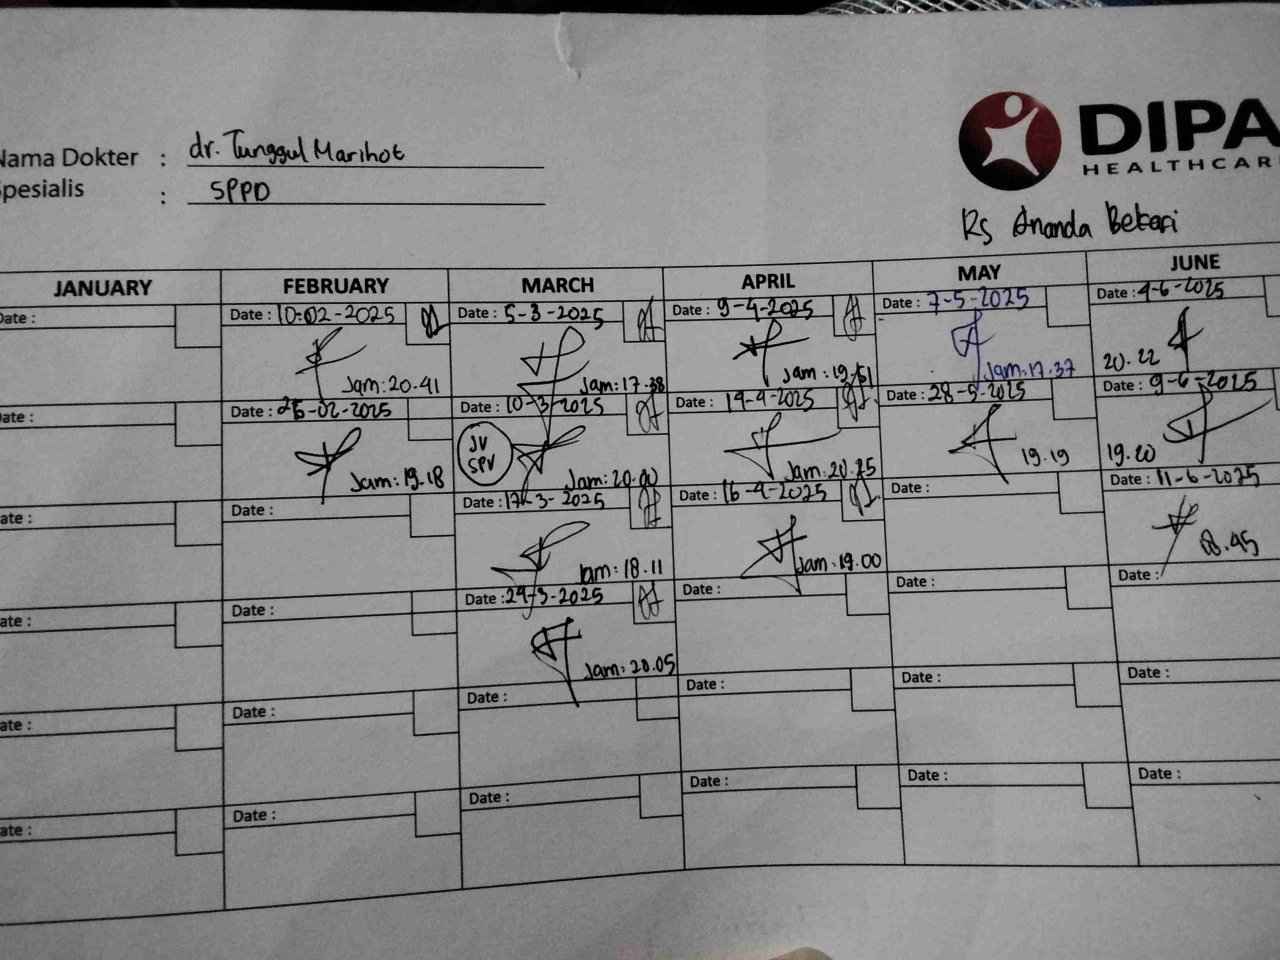 Nama Dokter : dr. Tunggul Marihot
Spesialis : SPPD
DIPA
HEALTHCAR
Rs Ananda Bekasi
JANUARY FEBRUARY MARCH APRIL MAY JUNE
Date : Date : 10-02-2025 Date : 5-3-2025 Date : 9-4-2025 Date : 7-5-2025 Date : 4-6-2025
Jam: 20.41 Jam: 17.38 Jam: 19.51 Jam: 17.37 20.22
ate : Date : 26-02-2025 Date : 10-3-2025 Date : 14-4-2025 Date : 28-5-2025 Date : 9-6-2025
JV
SPV
Jam: 19.18 Jam: 20.00 Jam: 20.25 19.19 19.20
ate : Date : Date : 17-3-2025 Date : 16-4-2025 Date : Date : 11-6-2025
Jam: 18.11 Jam: 19.00 18.45
ate : Date : Date : 24-3-2025 Date : Date : Date :
Jam: 20.05
ate : Date : Date : Date : Date : Date :
ate : Date : Date : Date : Date : Date :